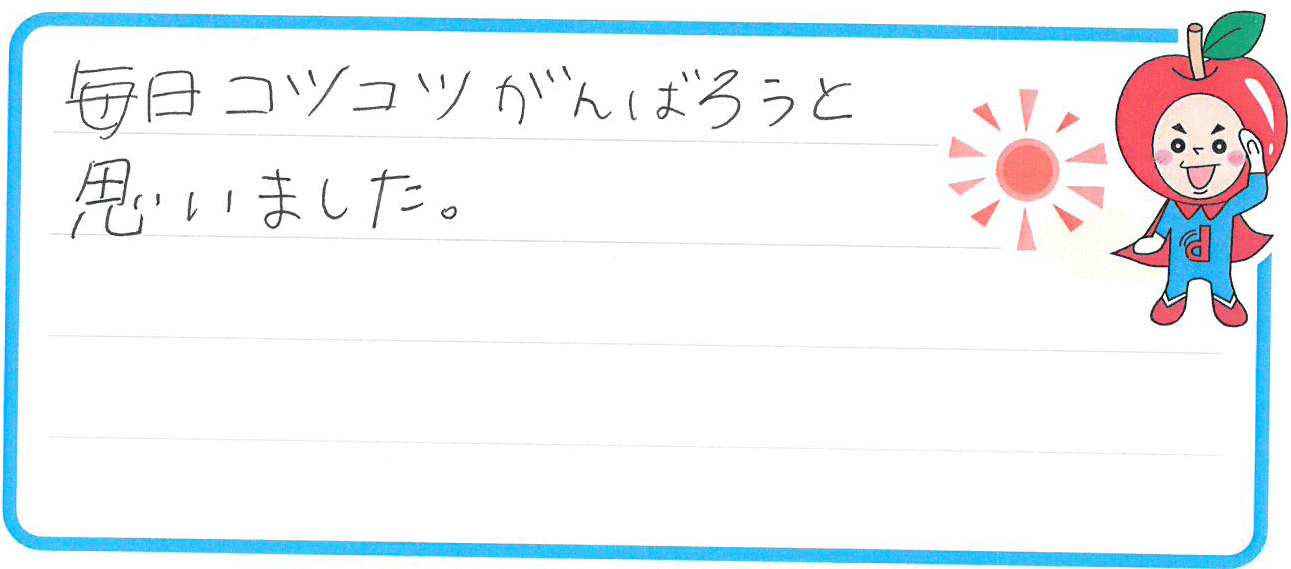 毎日コツコツがんばろうと
思いました。